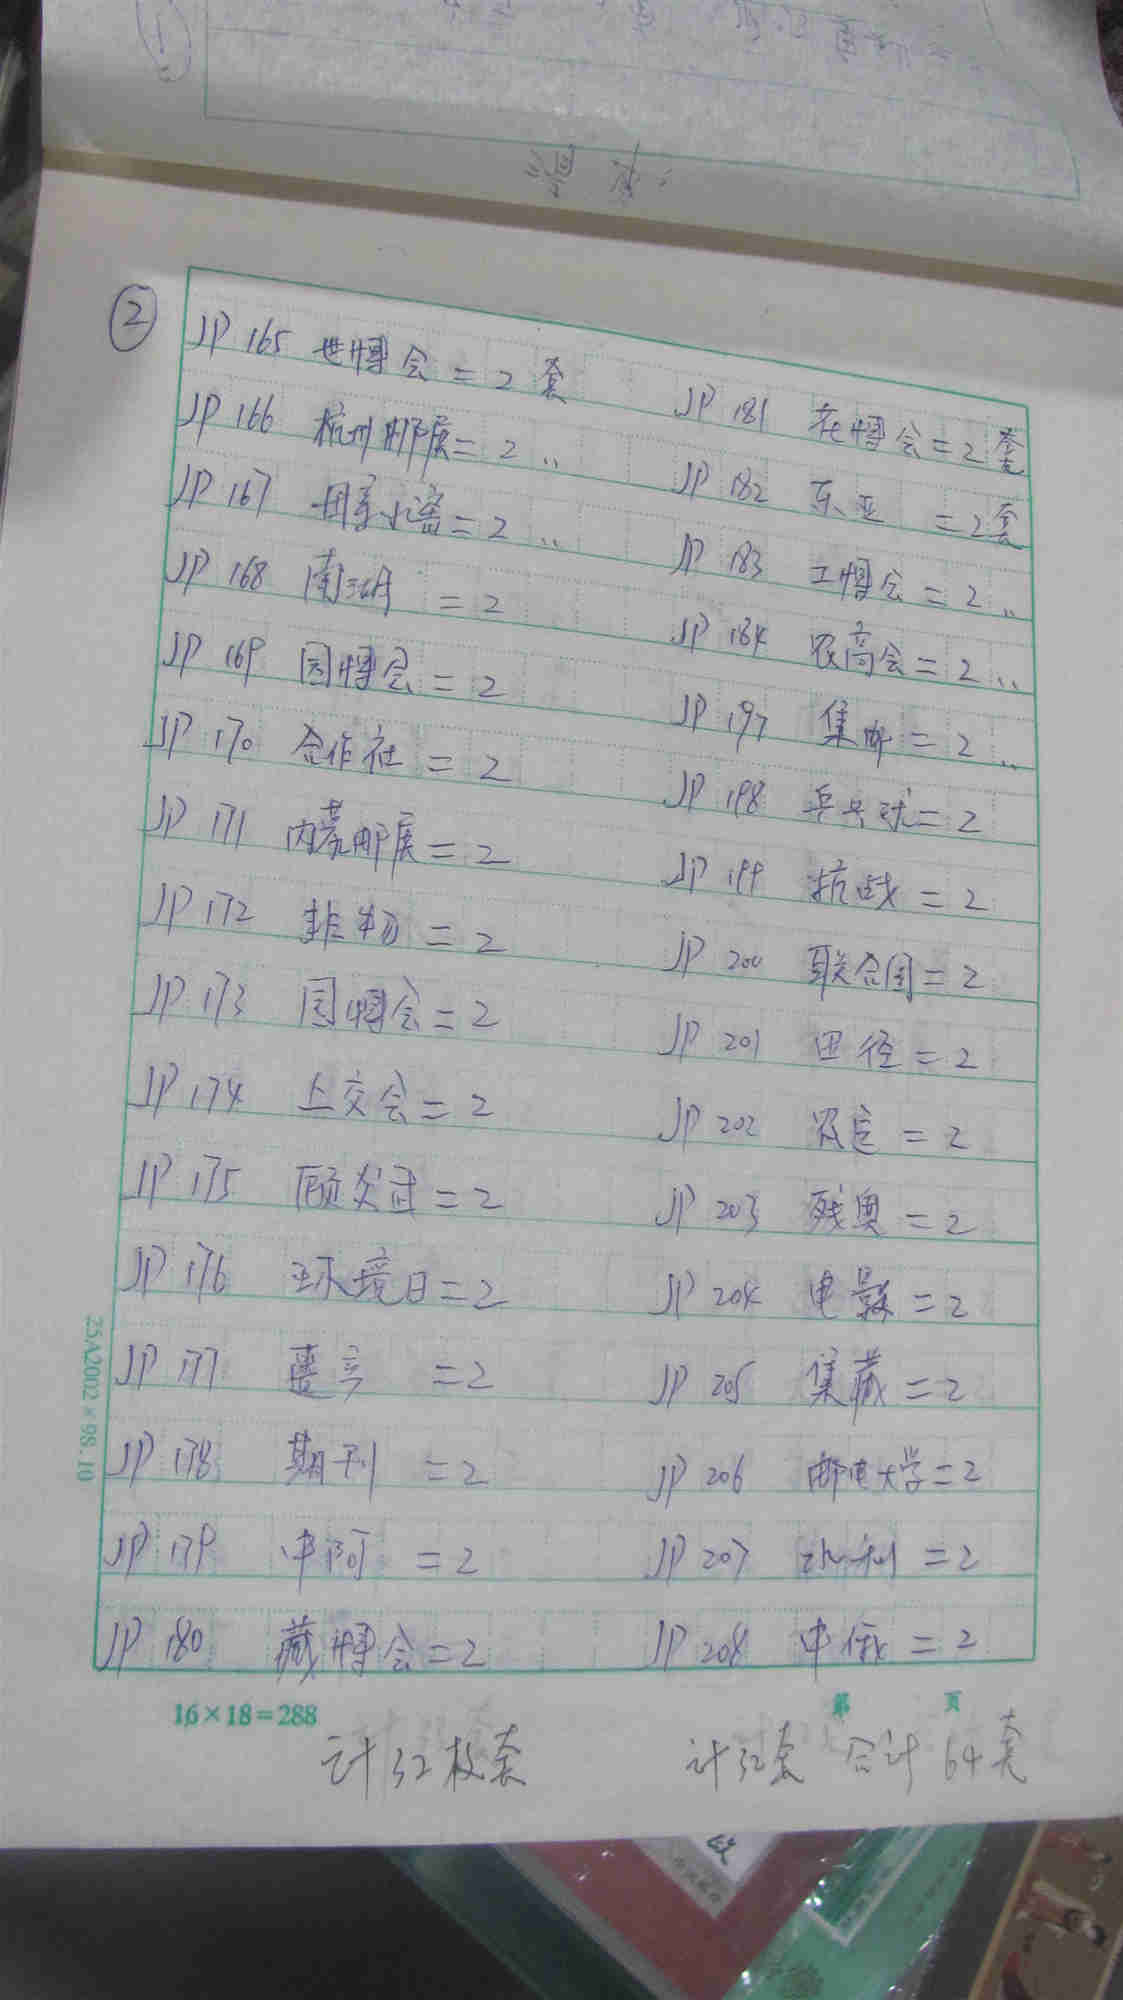 ②
JP 165 世博会=2套
JP 166 杭州邮展=2 〃
JP 167
JP 168
JP 169 园博会=2
JP 170 合作社=2
JP 171 内蒙邮展=2
JP 172 植物=2
JP 173 园博会=2
JP 174 上交会=2
JP 175 顾炎武=2
JP 176 环境日=2
JP 177 =2
JP 178 期刊=2
JP 179 中阿=2
JP 180 藏博会=2
JP 181 花博会=2套
JP 182 东亚=2套
JP 183 工博会=2 〃
JP 184 农高会=2 〃
JP 197 集邮=2 〃
JP 198 乒乓球=2
JP 199 抗战=2
JP 200 联合国=2
JP 201 田径=2
JP 202 农运=2
JP 203 残奥=2
JP 204 电影=2
JP 205 集藏=2
JP 206 邮电大学=2
JP 207 水利=2
JP 208 中俄=2
25A2002×98.10
16×18=288
第 页
计32枚套
计32套 合计64套